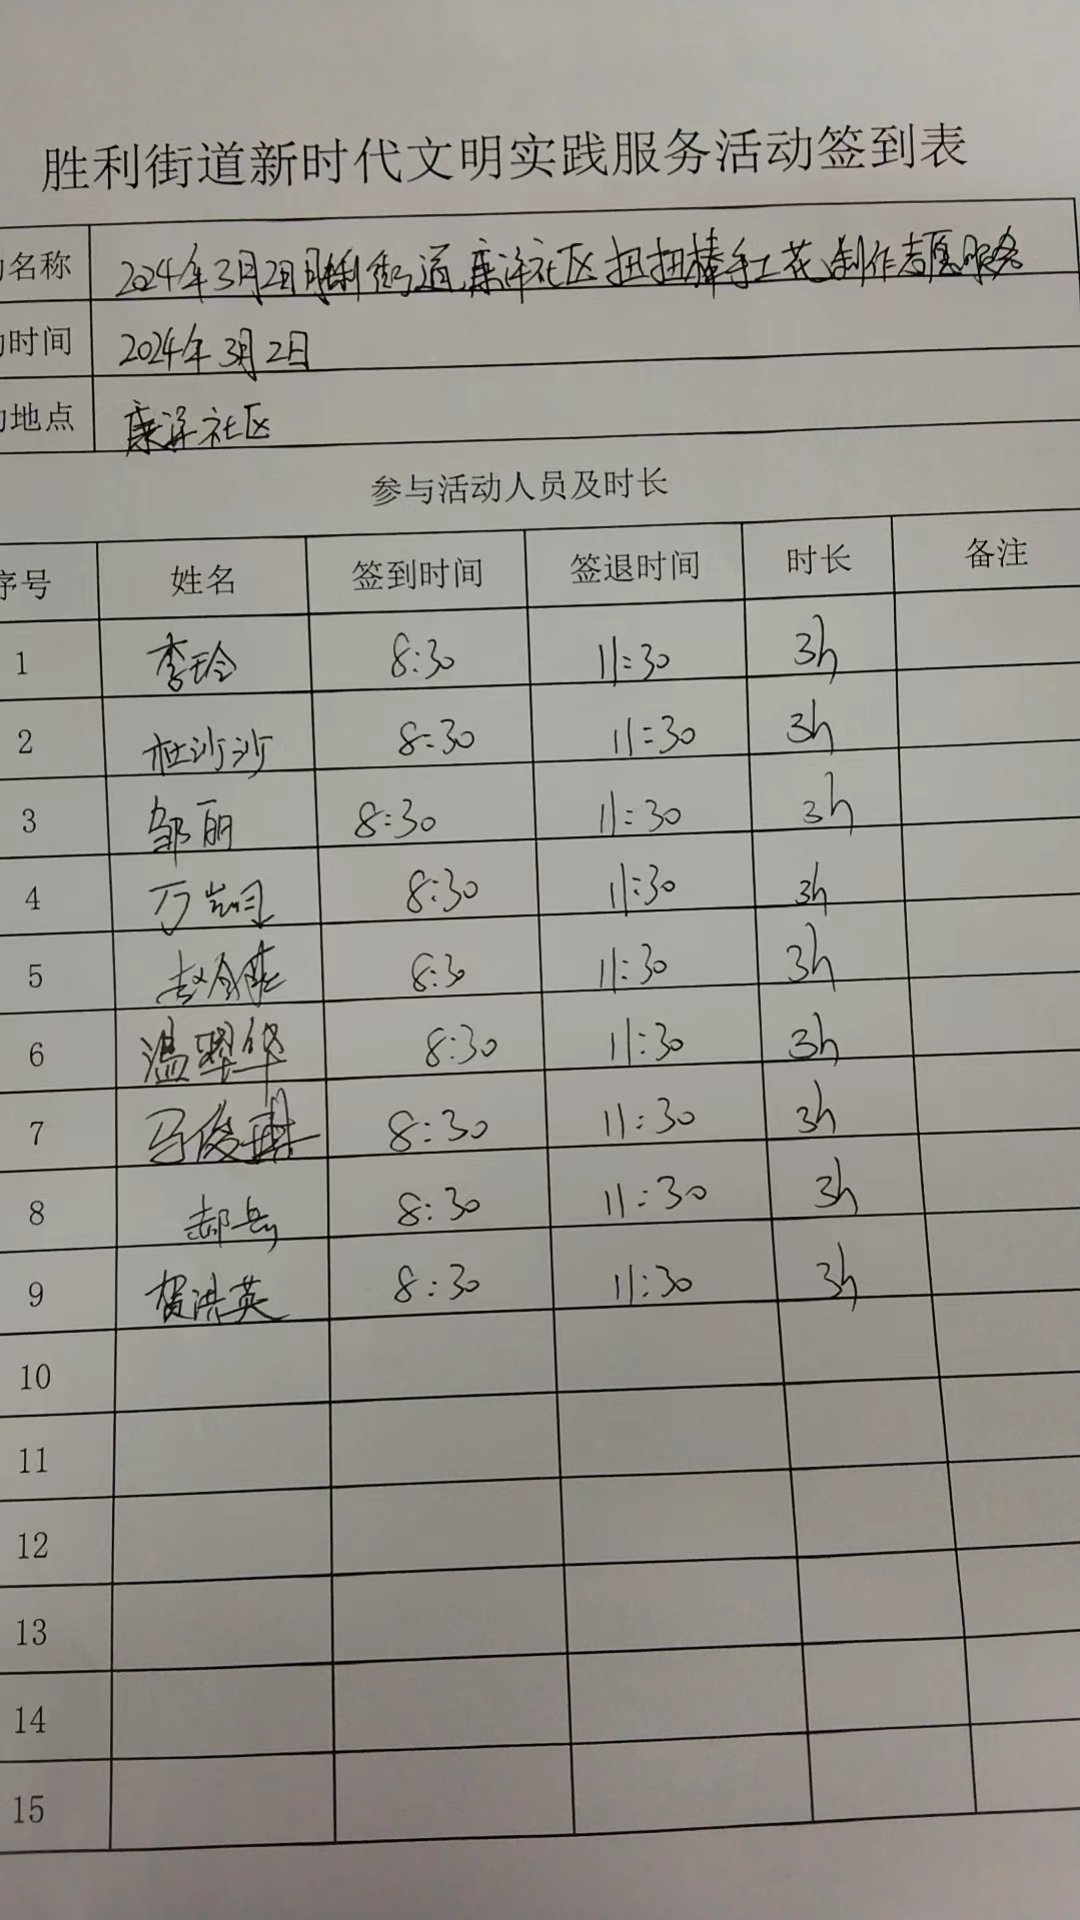 胜利街道新时代文明实践服务活动签到表
名称 2024年3月2日胜利街道康洋社区扭扭棒手工花制作志愿服务
时间 2024年3月2日
地点 康洋社区
参与活动人员及时长
序号 姓名 签到时间 签退时间 时长 备注
1 李玲 8:30 11:30 3h
2 杜沙沙 8:30 11:30 3h
3 邹丽 8:30 11:30 3h
4 万 8:30 11:30 3h
5 赵 8:30 11:30 3h
6 温翠华 8:30 11:30 3h
7 马俊琪 8:30 11:30 3h
8 郝岳 8:30 11:30 3h
9 贺洪英 8:30 11:30 3h
10
11
12
13
14
15